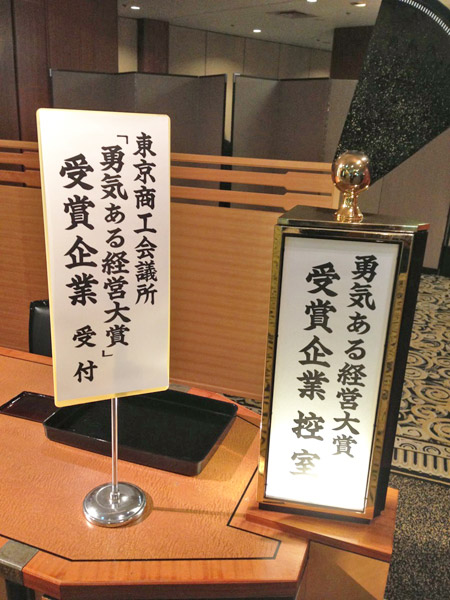 東京商工会議所
「勇気ある経営大賞」
受賞企業 受付
勇気ある経営大賞
受賞企業 控室